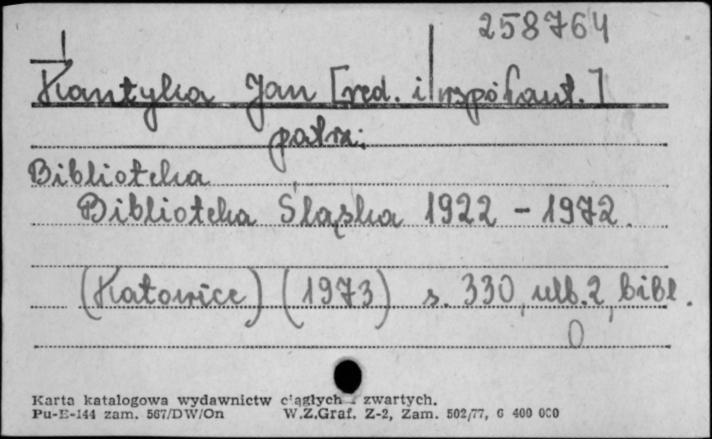 258764
Kantyka Jan [red. i współaut.]
patrz:
Biblioteka
Biblioteka Śląska 1922 - 1972.
(Katowice) (1973) s. 330, nlb. 2, bibl.
0
Karta katalogowa wydawnictw ciągłych i zwartych.
Pu-E-144 zam. 567/DW/On W.Z.Graf. Z-2, Zam. 502/77, 6 400 000